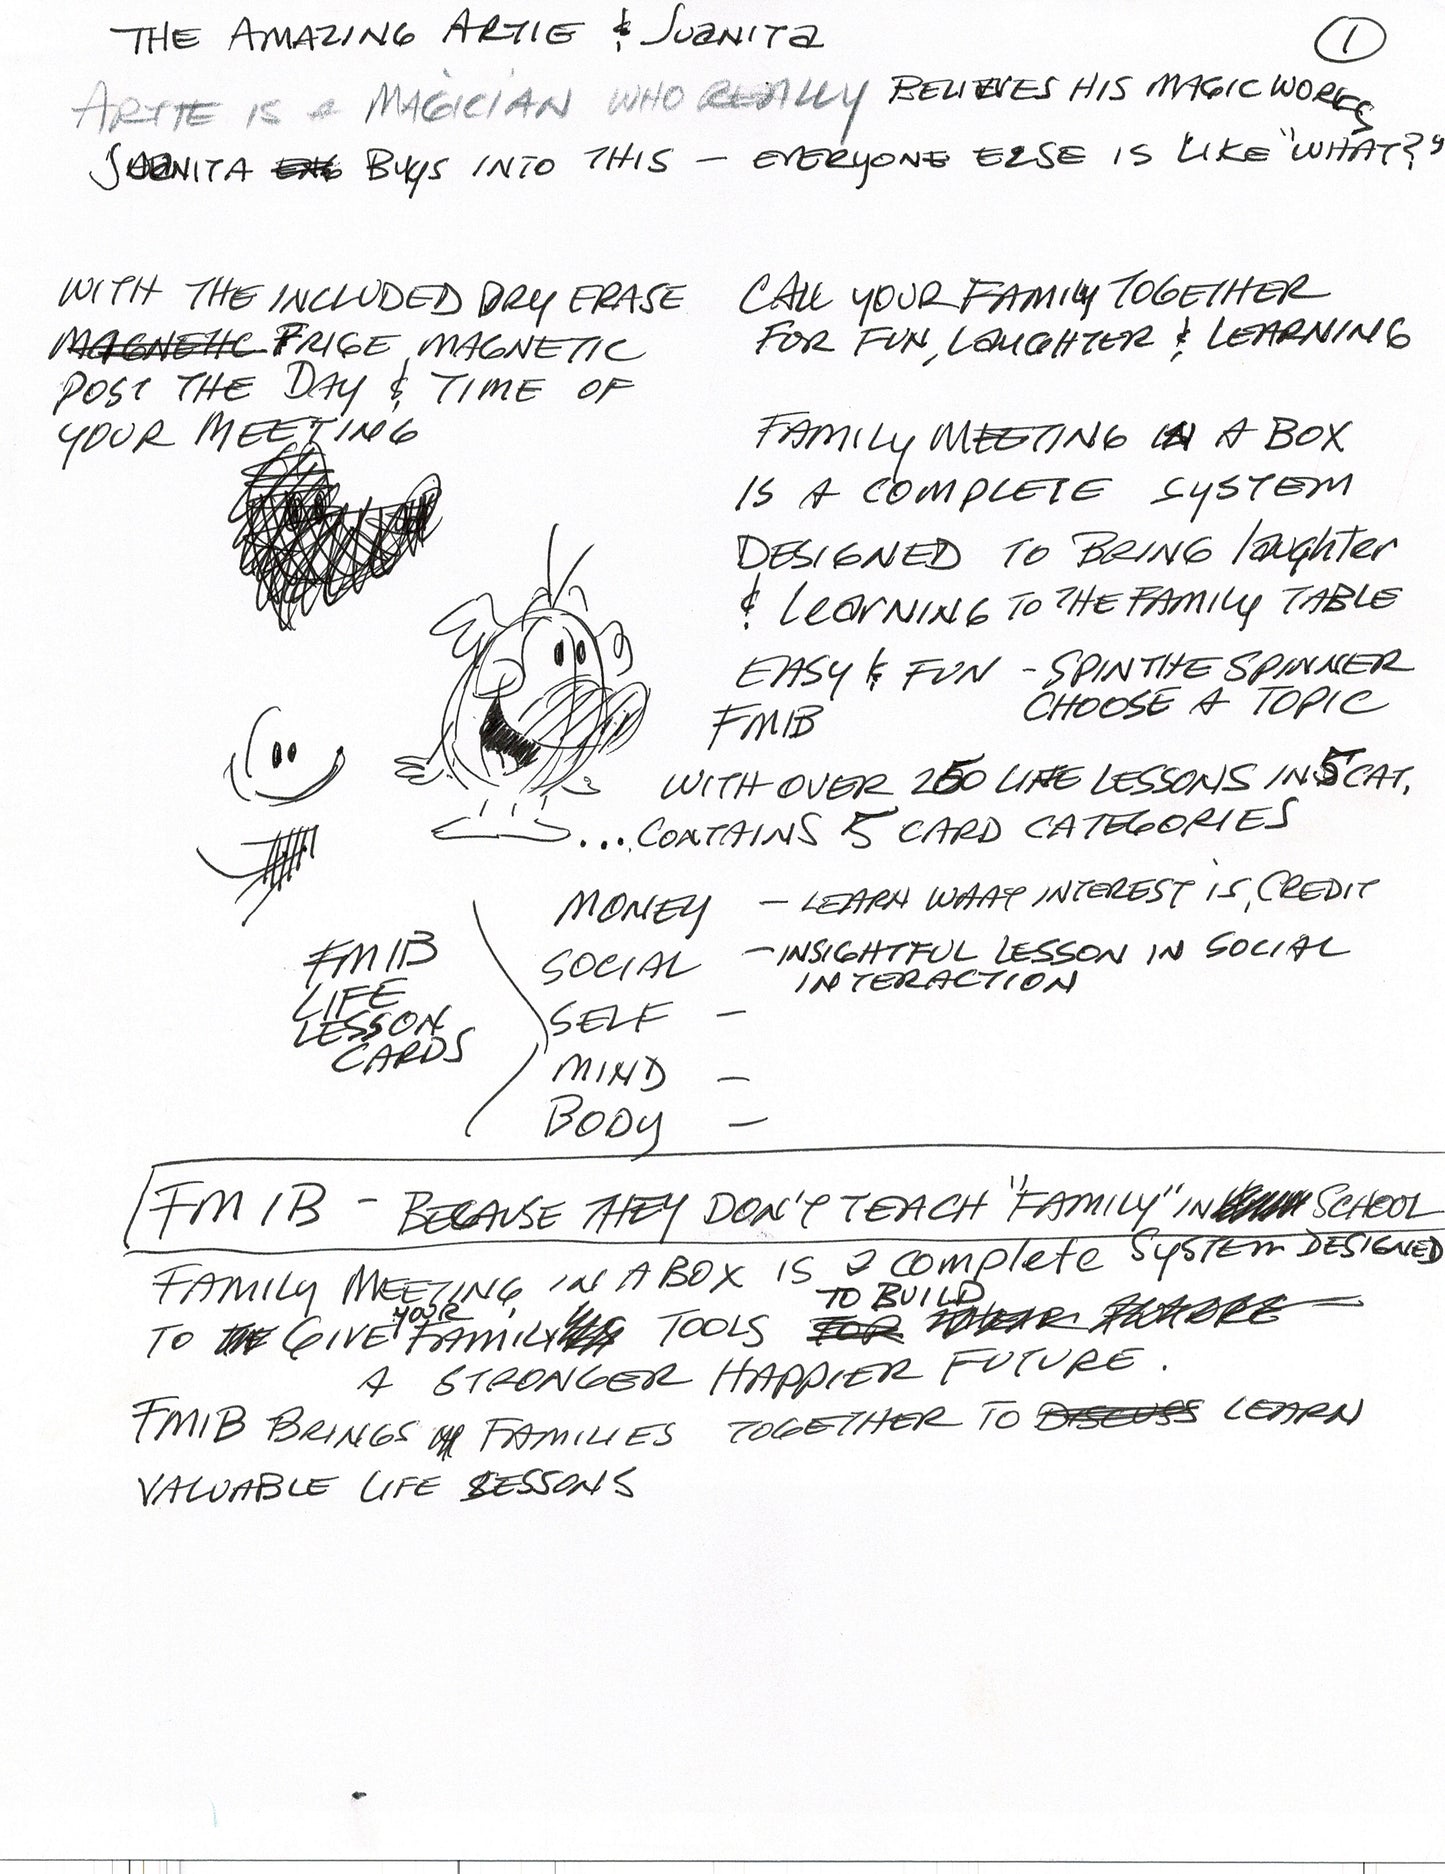 THE AMAZING ARTIE & JUANITA
1
ARTIE IS A MAGICIAN WHO REALLY BELIEVES HIS MAGIC WORKS
JUANITA BUYS INTO THIS — EVERYONE ELSE IS LIKE "WHAT?"
WITH THE INCLUDED DRY ERASE
MAGNETIC FRIGE MAGNETIC
POST THE DAY & TIME OF
YOUR MEETING
CALL YOUR FAMILY TOGETHER
FOR FUN, LAUGHTER & LEARNING
FAMILY MEETING IN A BOX
IS A COMPLETE SYSTEM
DESIGNED TO BRING laughter
& LEARNING TO THE FAMILY TABLE
EASY & FUN - SPIN THE SPINNER
CHOOSE A TOPIC
FMIB
WITH OVER 250 LIFE LESSONS IN 5 CAT.
...CONTAINS 5 CARD CATEGORIES
FMIB
LIFE
LESSON
CARDS
MONEY — LEARN WHAT INTEREST IS, CREDIT
SOCIAL — INSIGHTFUL LESSON IN SOCIAL
INTERACTION
SELF —
MIND —
BODY —
FMIB - BECAUSE THEY DON'T TEACH "FAMILY" IN SCHOOL
FAMILY MEETING IN A BOX IS a complete SYSTEM DESIGNED
TO GIVE YOUR FAMILY TOOLS FOR TO BUILD
A STRONGER HAPPIER FUTURE.
FMIB BRINGS FAMILIES TOGETHER TO DISCUSS LEARN
VALUABLE LIFE LESSONS